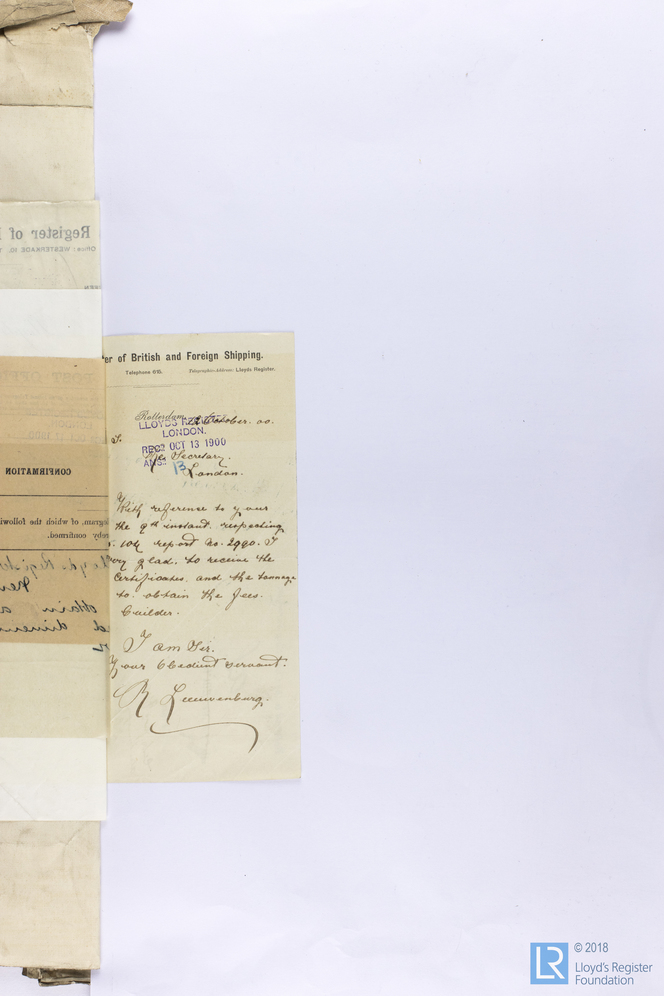 er of British and Foreign Shipping.
Telephone 615.
Telegraphic Address: Lloyds Register.
Rotterdam, October. 00.
LLOYD'S REG
LONDON.
REC? OCT 13 1900
ANS? 13
The Secretary.
London.
With reference to your
the 9th instant. respecting
report No. 2990. I
glad. to receive the
Certificates. and the tonnage
to. obtain the fees.
Builder.
I am Sir.
Your Obedient servant.
R Leeuwenburg.
Register of
Office: WESTERKADE
POST OFFI
LONDON
CT 13 1900
CONFIRMATION
egram, of which the followi
reby confirmed.
Lloyds Registe
obtain a
d dimen
© 2018
LR
Lloyd's Register
Foundation